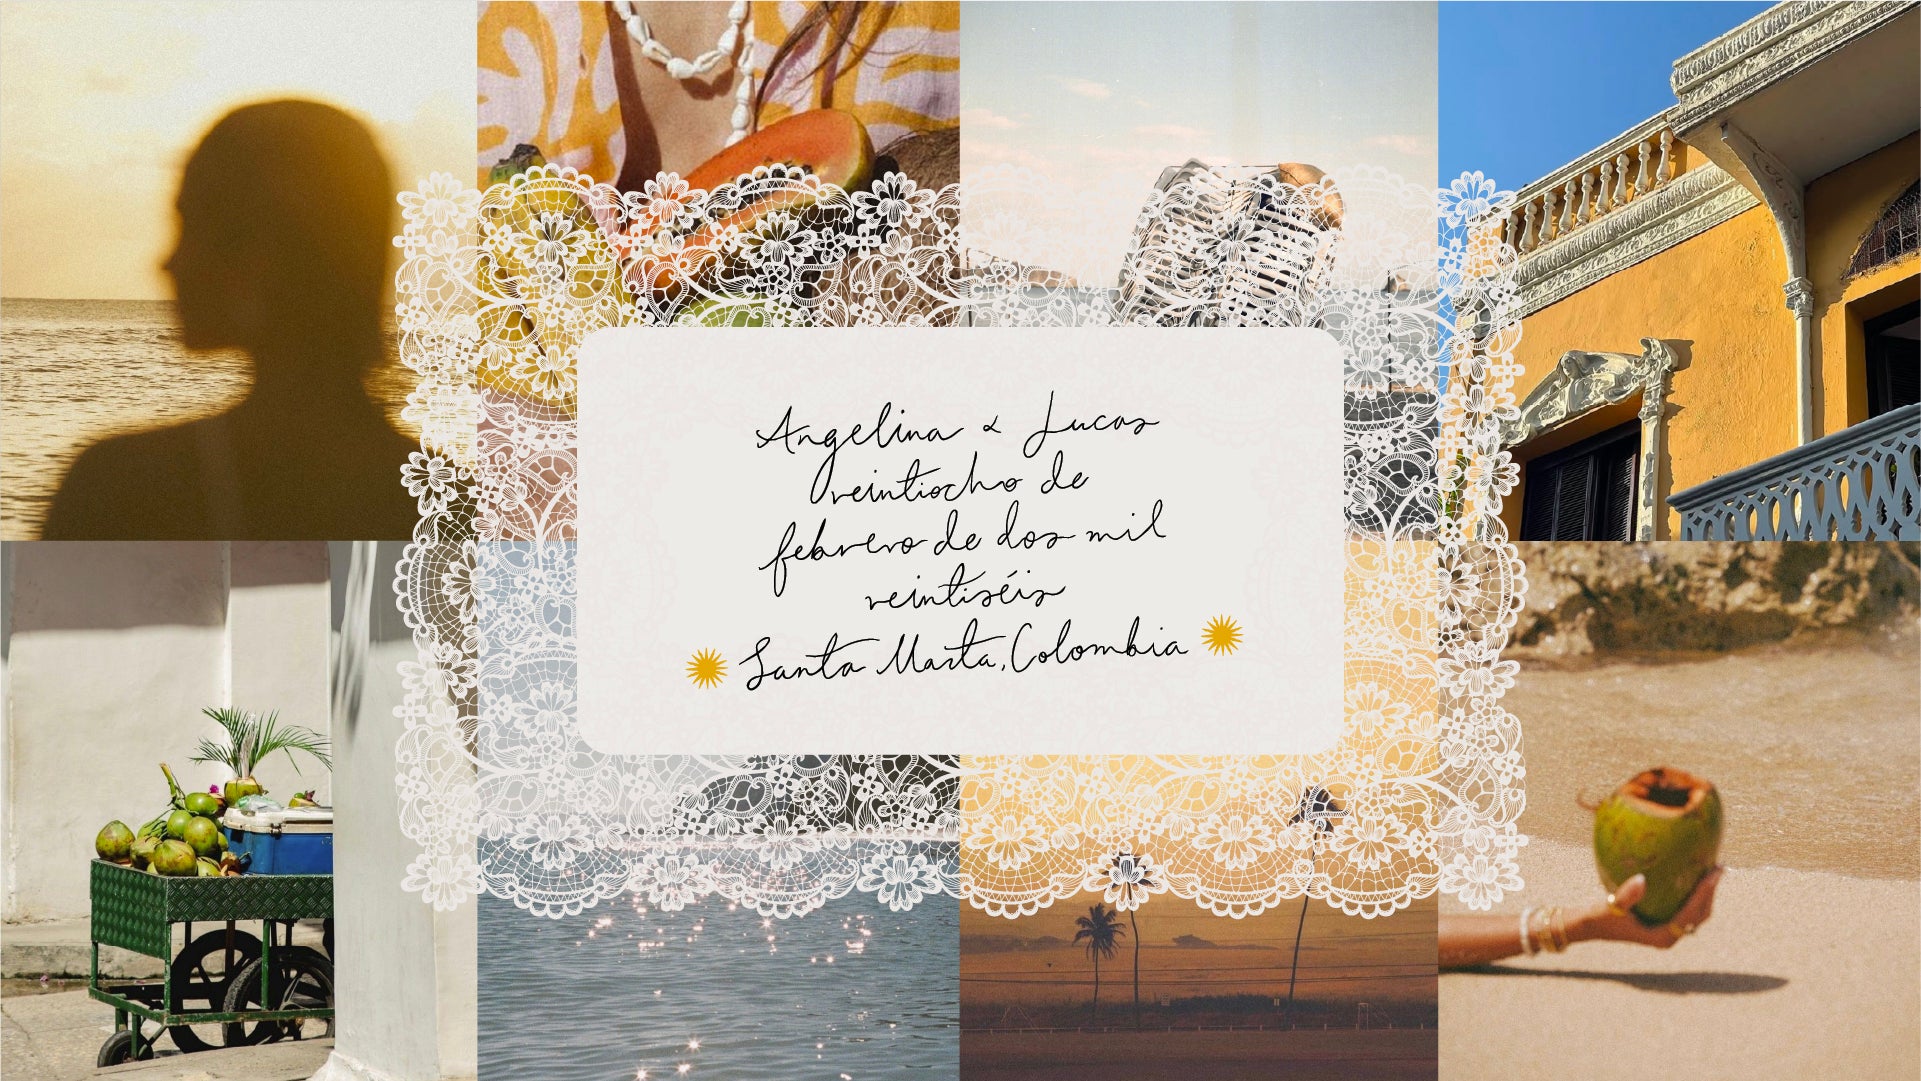 Angelina & Lucas
veintiocho de
febrero de dos mil
veintiséis
Santa Marta, Colombia